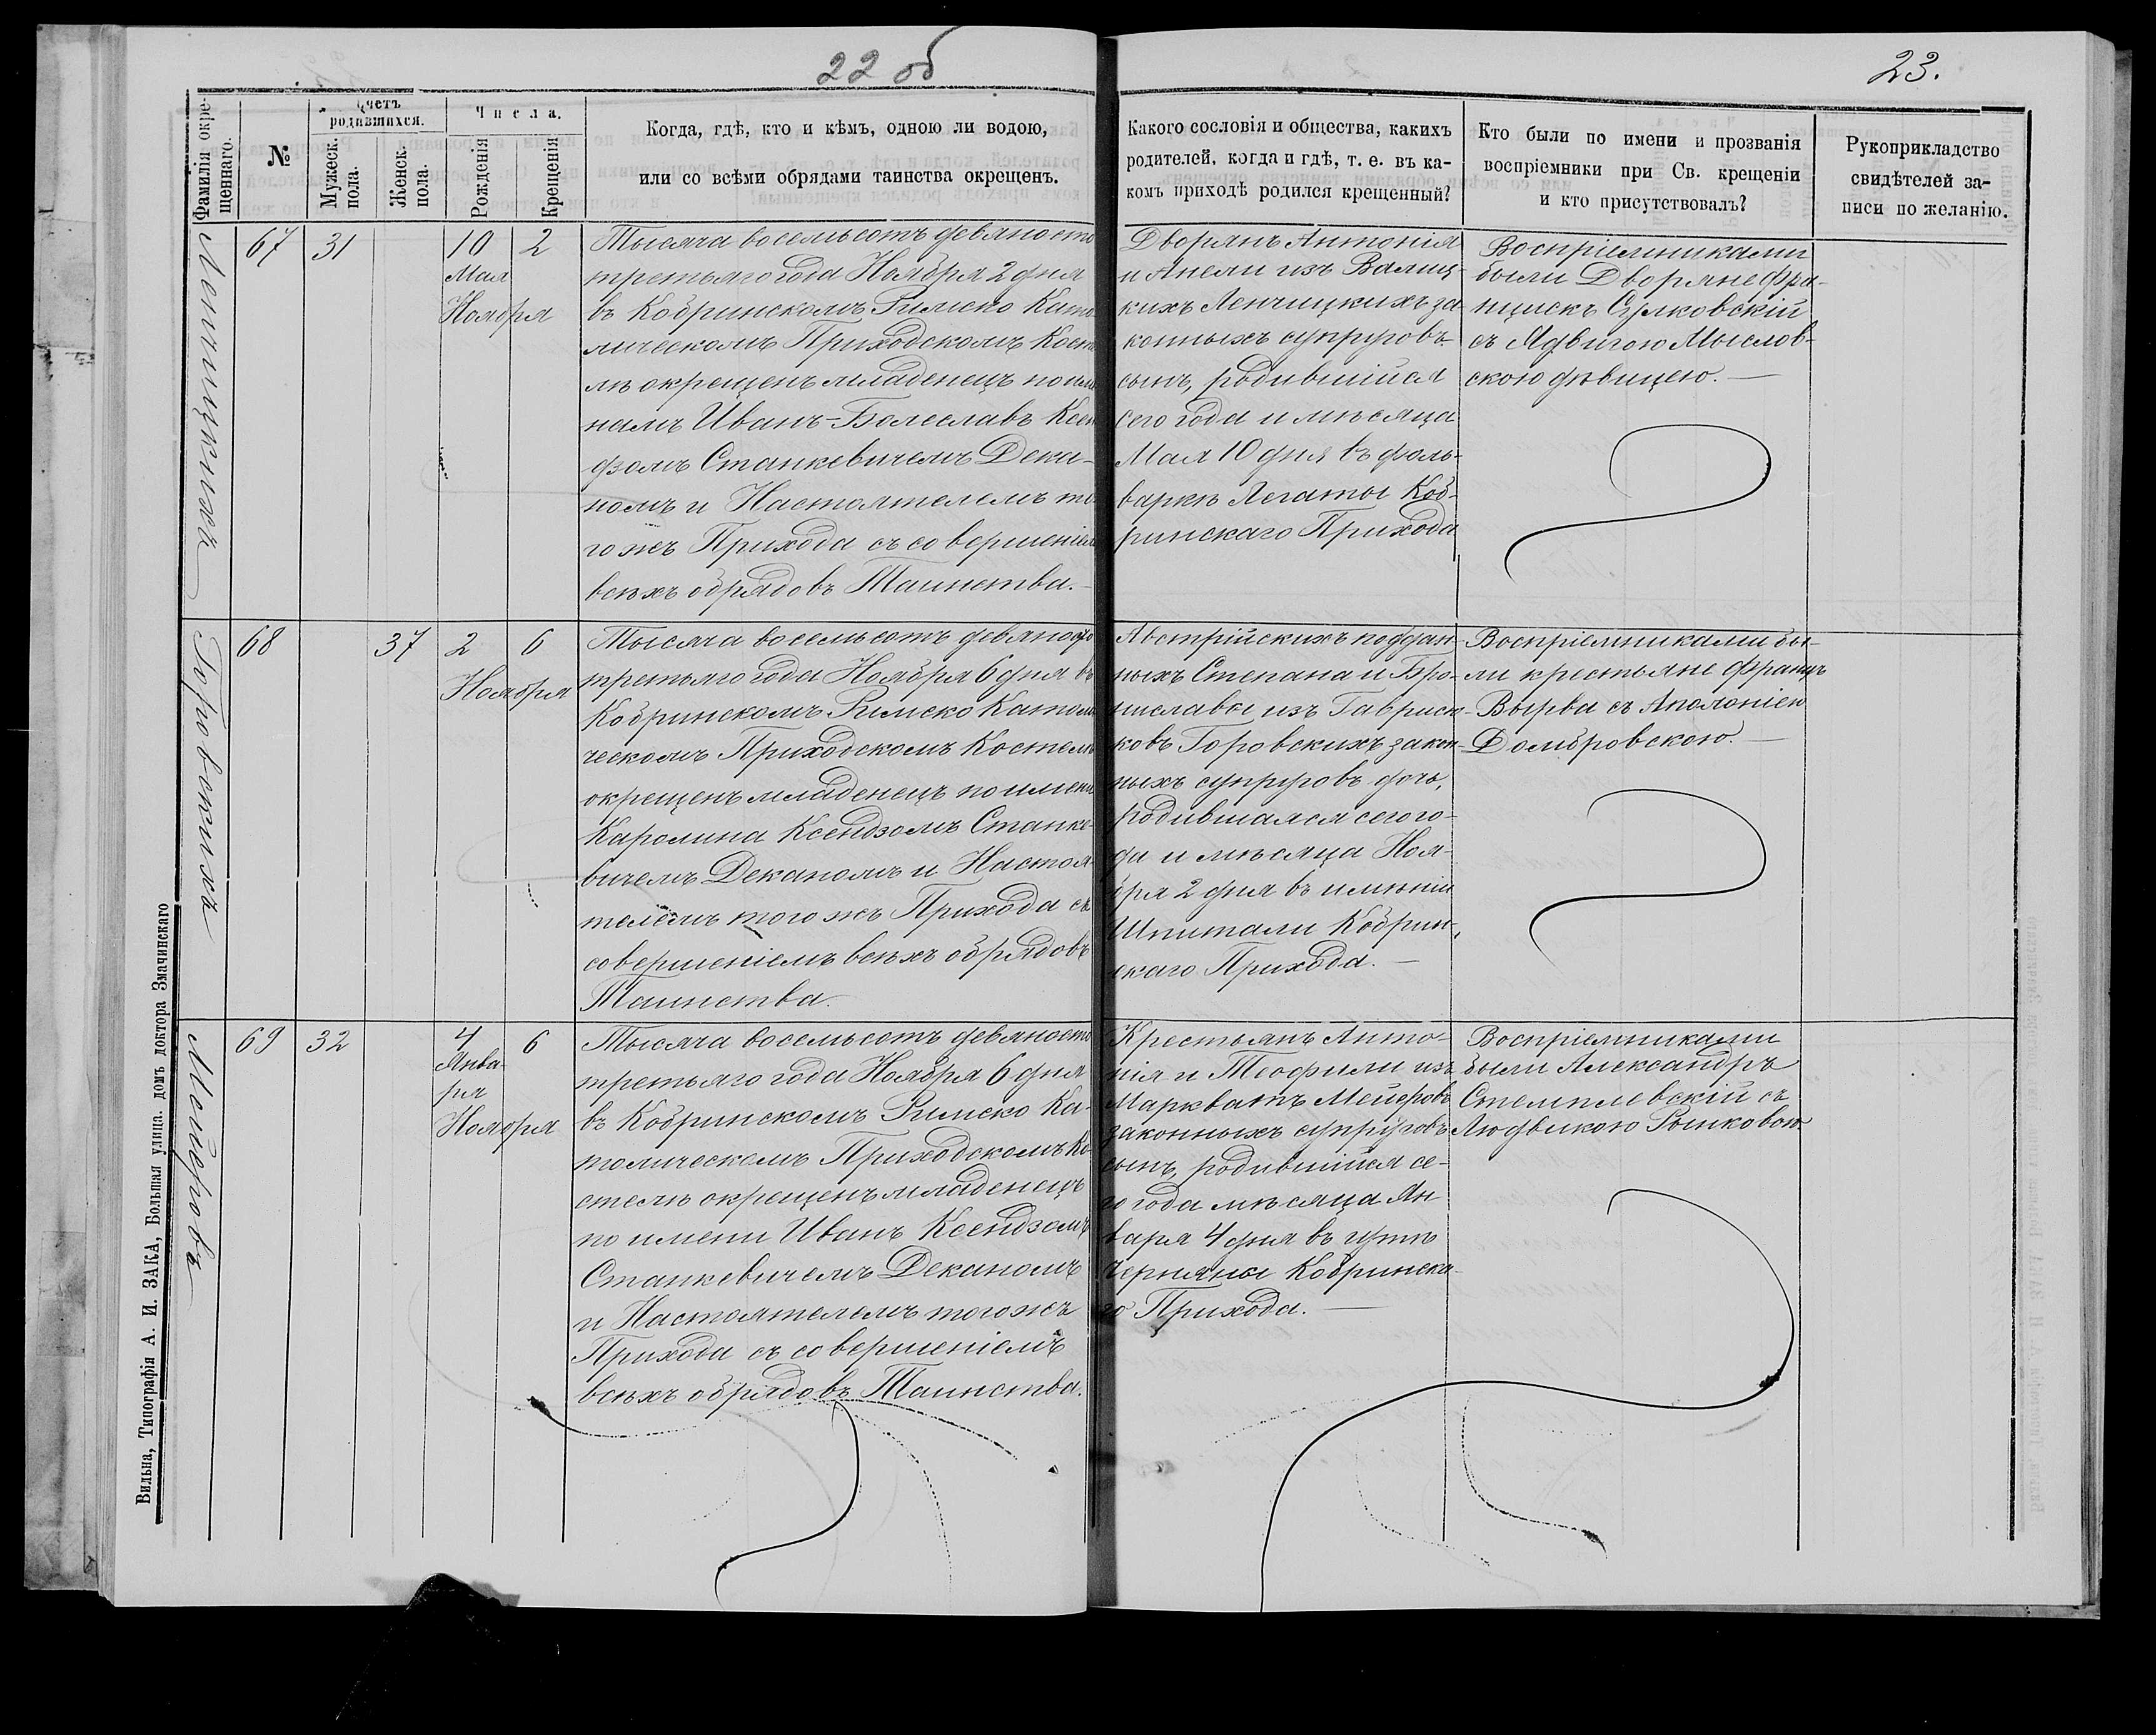 22 об
23.
Фамилія окре-
щеннаго.
№
Счетъ
родившихся.
Мужеск.
пола.
Женск.
пола.
Числа.
Рожденія
Крещенія
Когда, гдѣ, кто и кѣмъ, одною ли водою,
или со всѣми обрядами таинства окрещенъ.
Какого сословія и общества, какихъ
родителей, когда и гдѣ, т. е. въ ка-
комъ приходѣ родился крещенный?
Кто были по имени и прозванія
воспріемники при Св. крещеніи
и кто присутствовалъ?
Рукоприкладство
свидѣтелей за-
писи по желанію.
Ленчицкихъ
67
31
10
Мая
2
Ноября
Тысяча восемьсотъ девяносто
третьяго года Ноября 2 дня
въ Кобринскомъ Римско Като
лическомъ Приходскомъ Косте
лѣ окрещенъ младенецъ по име
намъ Иванъ-Болеславъ Ксен
дзомъ Станкевичемъ Дека-
номъ и Настоятелемъ то
го жъ Прихода съ совершеніемъ
всѣхъ обрядовъ Таинства.
Дворянъ Антонія
и Анели изъ Валиц-
кихъ Ленчицкихъ за-
конныхъ супруговъ
сынъ, родившійся
сего года и мѣсяца
Мая 10 дня въ фоль-
варкѣ Легаты Коб-
ринскаго Прихода
Воспріемниками
были Дворяне Фра-
нцискъ Сулковскій
съ Ядвигою Мыслов-
скою дѣвицею.
Горовскихъ
68
37
2
6
Ноября
Тысяча восемьсотъ девяносто
третьяго года Ноября 6 дня въ
Кобринскомъ Римско Католи
ческомъ Приходскомъ Костелѣ
окрещенъ младенецъ по имени
Каролина Ксендзомъ Станке-
вичемъ Деканомъ и Настоя-
телемъ того жъ Прихода съ
совершеніемъ всѣхъ обрядовъ
Таинства.
Австрійскихъ поддан-
ныхъ Степана и Бро-
ниславы изъ Гаврисю-
ковъ Горовскихъ закон-
ныхъ супруговъ дочь,
родившаяся сего го-
да и мѣсяца Ноя-
бря 2 дня въ имѣніи
Шпитали Кобрин-
скаго Прихода.
Воспріемниками бы-
ли крестьяне Францъ
Вырва съ Аполоніею
Домбровскою.
Мейеровъ
69
32
4
Янва-
ря
6
Ноября
Тысяча восемьсотъ девяносто
третьяго года Ноября 6 дня
въ Кобринскомъ Римско Ка-
толическомъ Приходскомъ Ко
стелѣ окрещенъ младенецъ
по имени Иванъ Ксендзомъ
Станкевичемъ Деканомъ
и Настоятелемъ того жъ
Прихода съ совершеніемъ
всѣхъ обрядовъ Таинства.
Крестьянъ Анто-
нія и Теофили изъ
Маркватъ Мейеровъ
законныхъ супруговъ
сынъ, родившійся се-
го года мѣсяца Ян
варя 4 дня въ
Черняны Кобринска-
го Прихода.
Воспріемниками
были Александръ
Стемплевскій съ
Людвикою Рынковою.
Вильна, Типографія А. И. ЗАКА, Большая улица. домъ доктора Змачинскаго